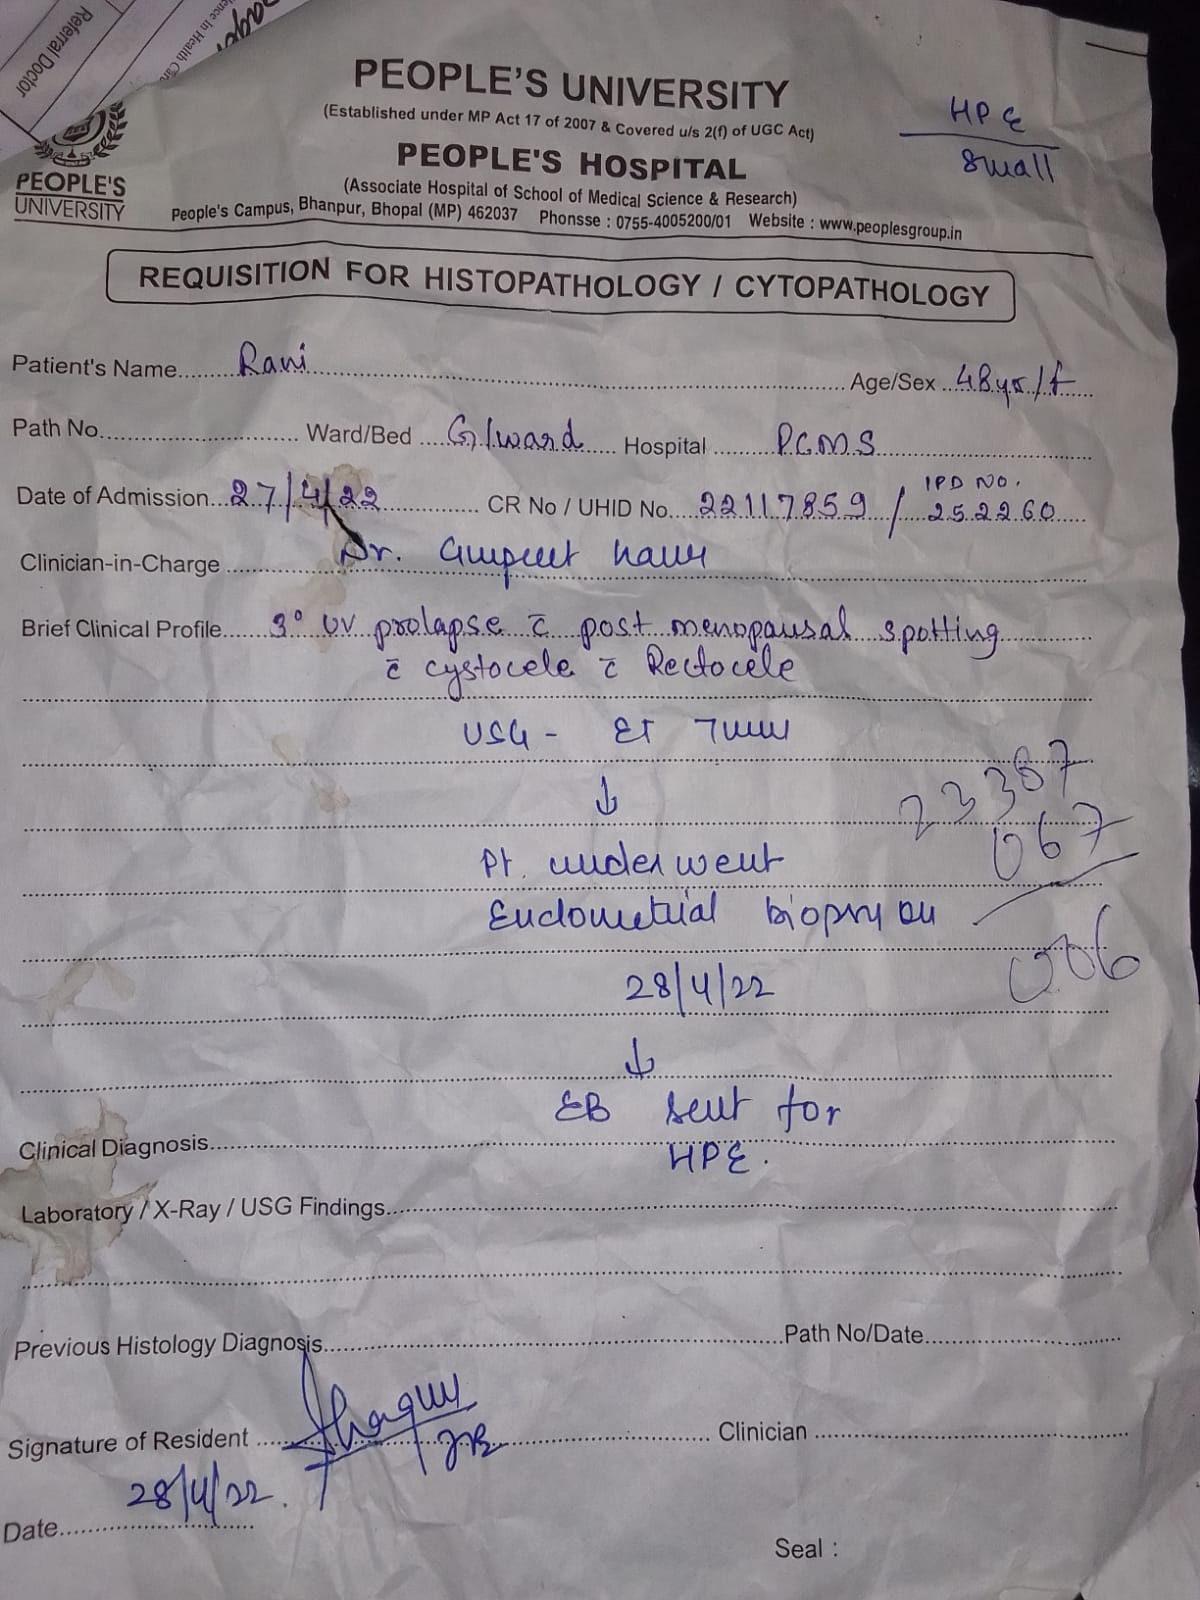 Referral Doctor
PEOPLE'S UNIVERSITY
(Established under MP Act 17 of 2007 & Covered u/s 2(f) of UGC Act)
HPE
Small
PEOPLE'S HOSPITAL
(Associate Hospital of School of Medical Science & Research)
PEOPLE'S
UNIVERSITY
People's Campus, Bhanpur, Bhopal (MP) 462037 Phonsse : 0755-4005200/01 Website : www.peoplesgroup.in
REQUISITION FOR HISTOPATHOLOGY / CYTOPATHOLOGY
Patient's Name Rani Age/Sex 48yr/f
Path No. Ward/Bed G/ward Hospital P.C.M.S
Date of Admission 27/4/22 CR No / UHID No. 22117859 / IPD NO. 252260
Clinician-in-Charge Dr. Gurpreet Kaur
Brief Clinical Profile 3° UV prolapse c̄ post menopausal spotting
c̄ cystocele c̄ Rectocele
USG - ET 7mm
↓
23367
Pt. underwent
067
Endometrial biopsy on
28/4/22
006
↓
EB sent for
Clinical Diagnosis
HPE.
Laboratory / X-Ray / USG Findings
Previous Histology Diagnosis Path No/Date
Signature of Resident JR Clinician
28/4/22.
Date
Seal :